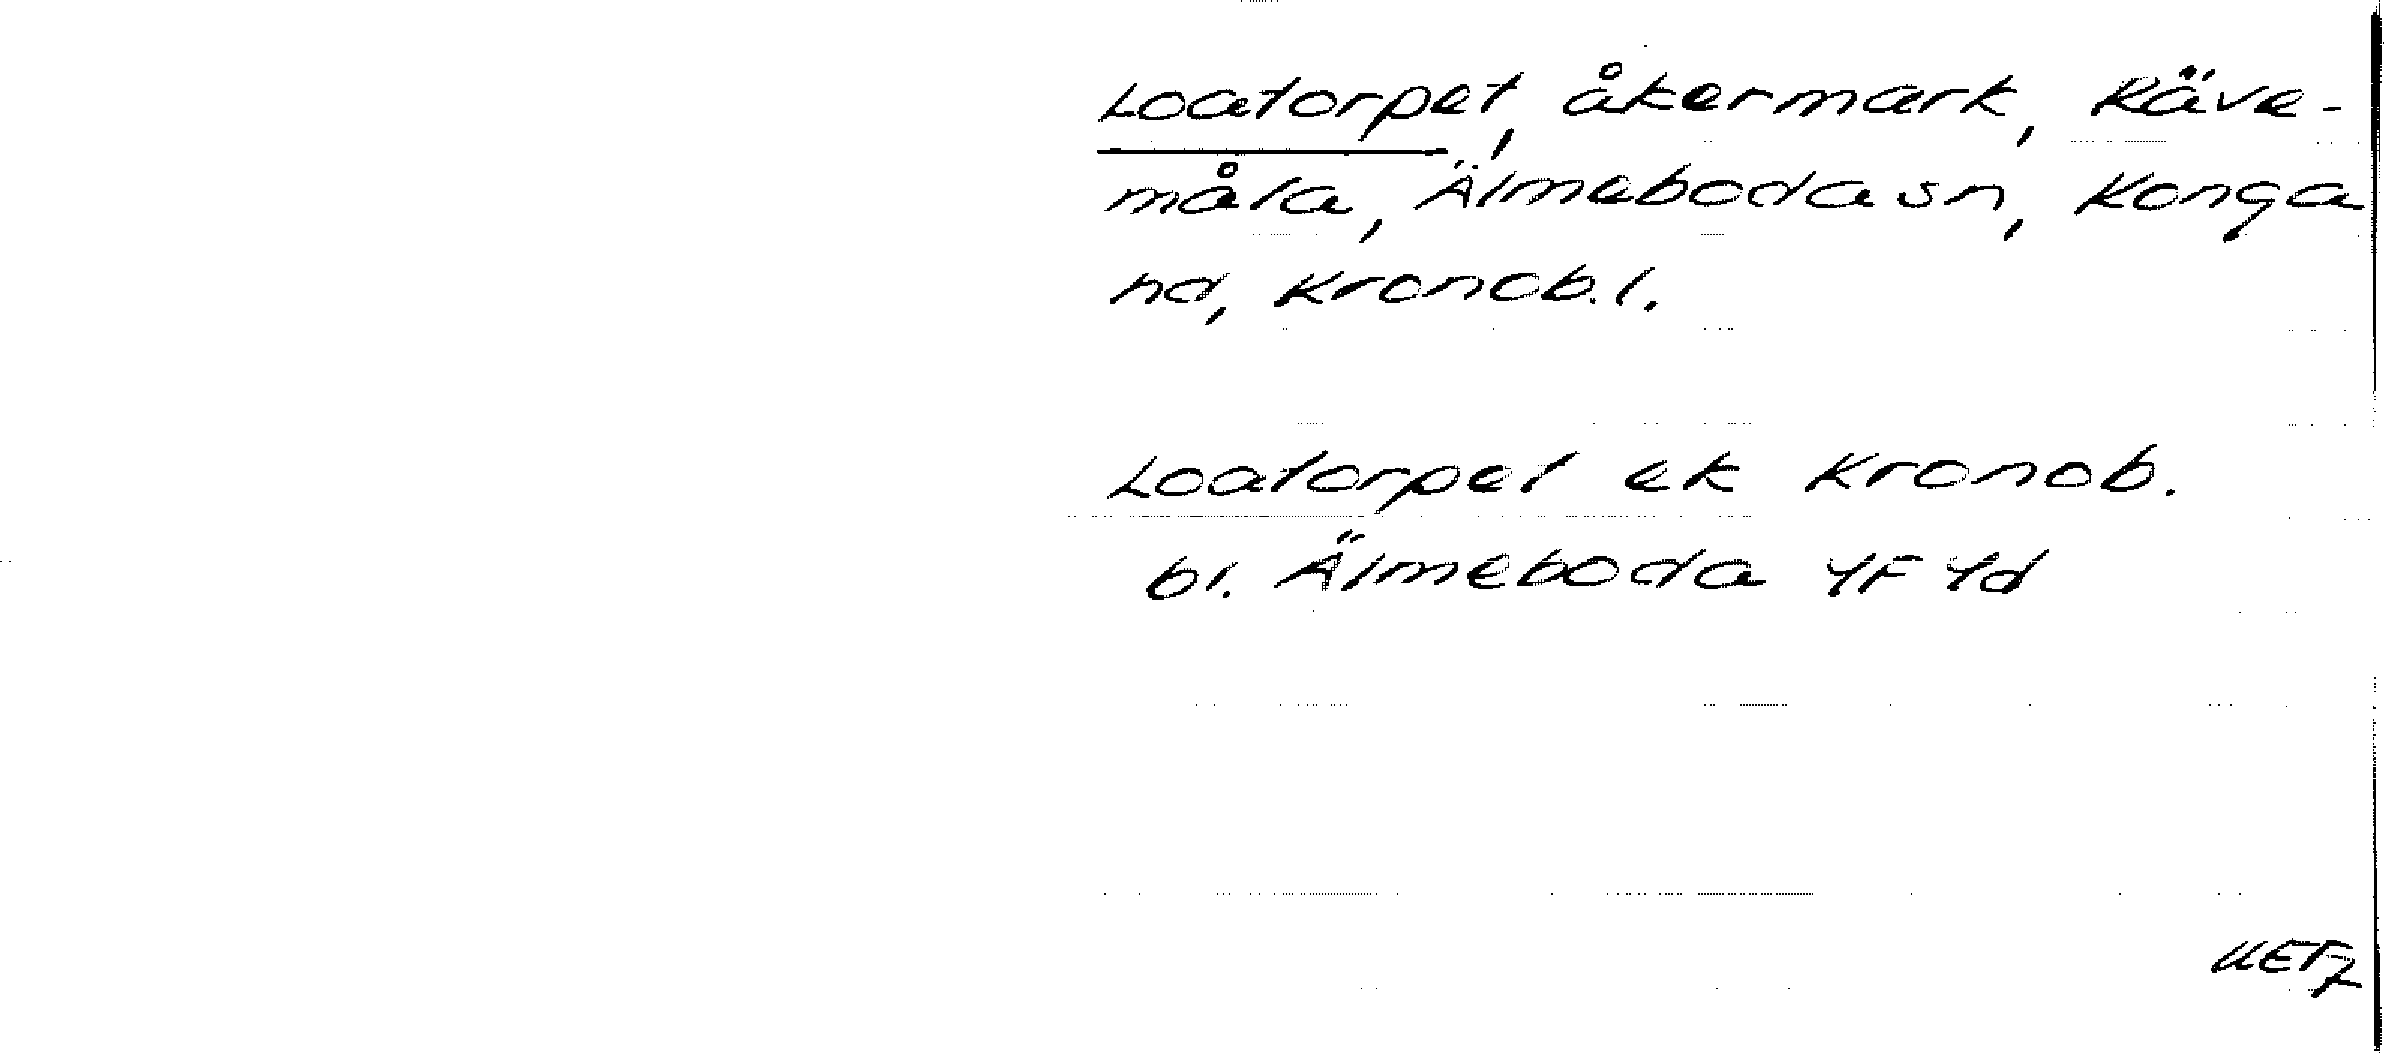 Loatorpet, åkermark, Räve-
måla, Älmeboda sn, Konga
hd, Kronob. l.
Loatorpet ek Kronob.
bl. Älmeboda 4F 4d